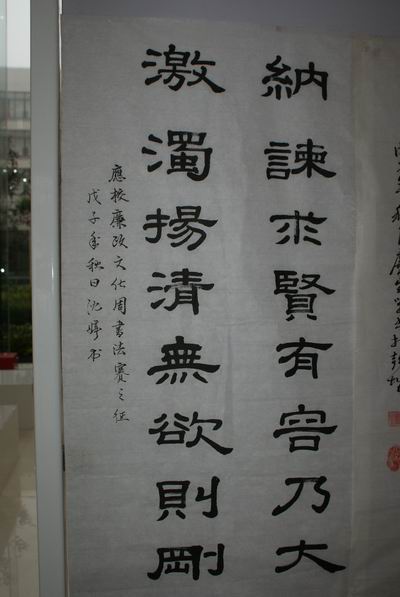 納諫求賢有容乃大
激濁揚清無欲則剛
應校廉政文化周書法賽之征
戊子年秋日沈婷书